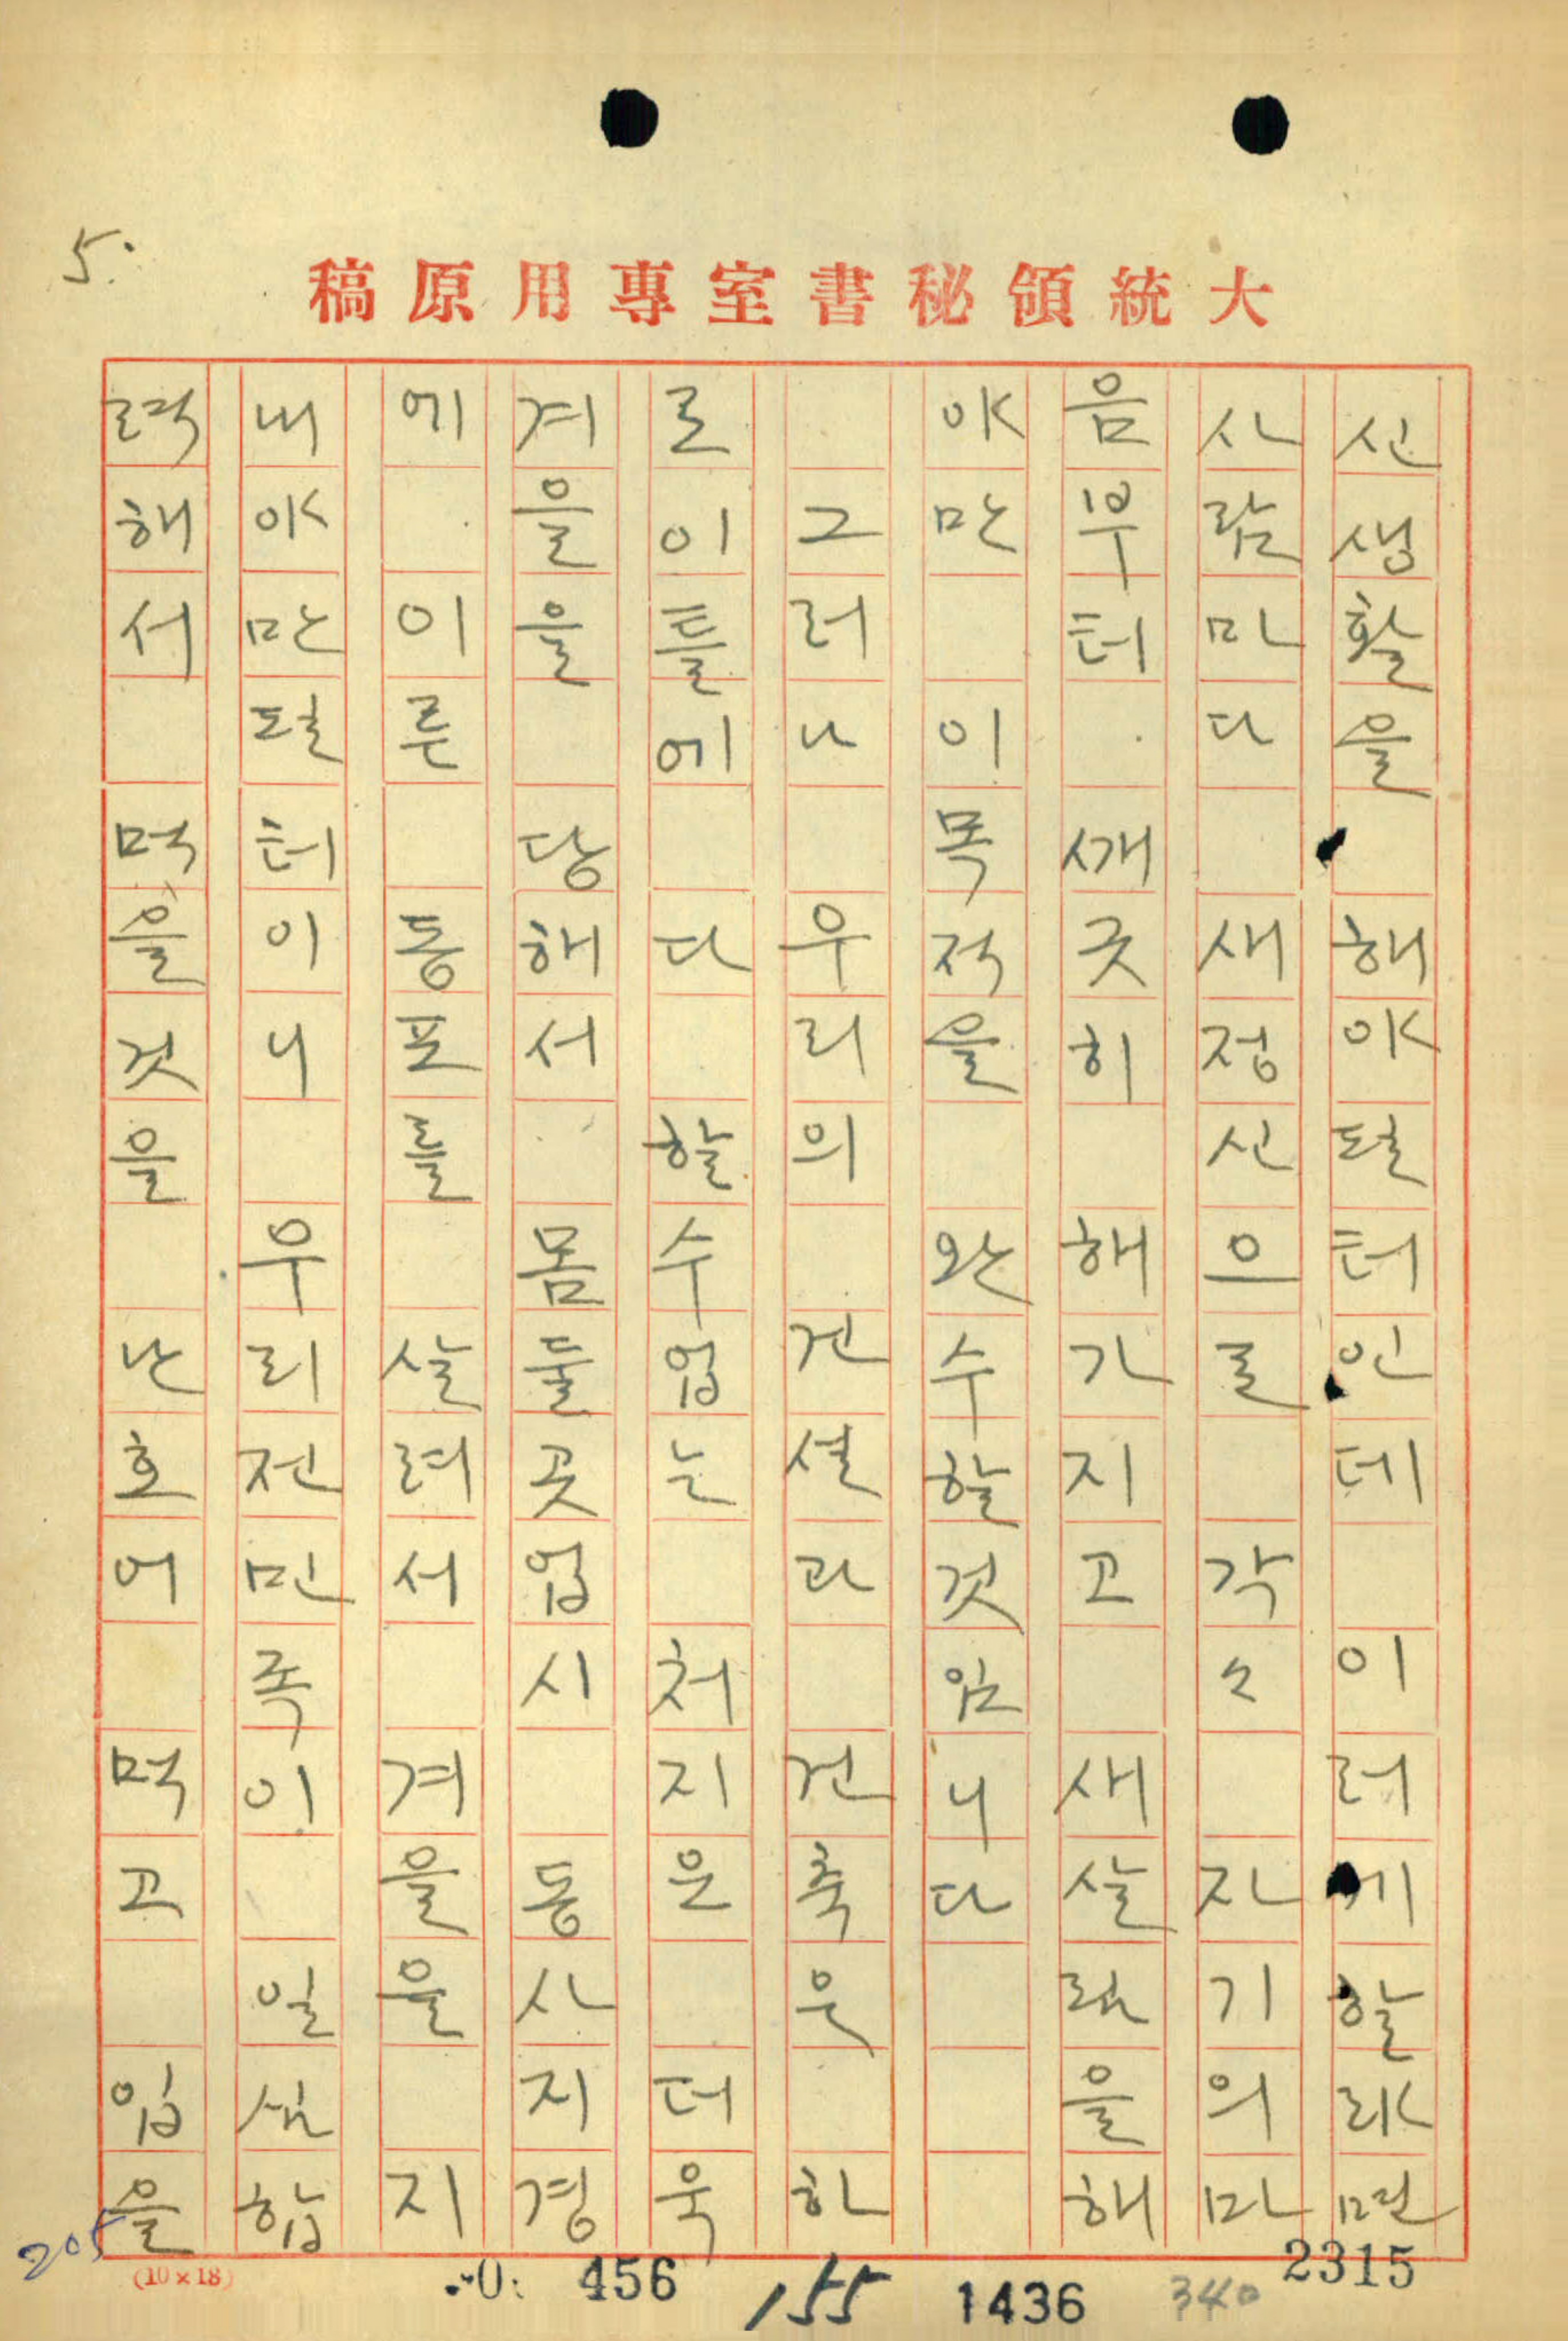 5.
大統領秘書室專用原稿
신생활을 해야될터인데 이러케할랴면
사람마다 새정신으로 각々 자기의마
음부터. ᄭᅢ긋히 해가지고 새살림을해
야만 이목적을 완수할것임니다
그러나 우리의 건설과 건축은 하
로이틀에 다 할수업는 처지은 더욱
겨을을 당해서 몸둘곳업시 동사지경
에. 이룬 동포를 살려서 겨을을 지
내야만될터이니 우리전민족이 일심합
력해서 먹을것을 난호어 먹고 입을
205
(10×18)
456
155
1436
340
2315